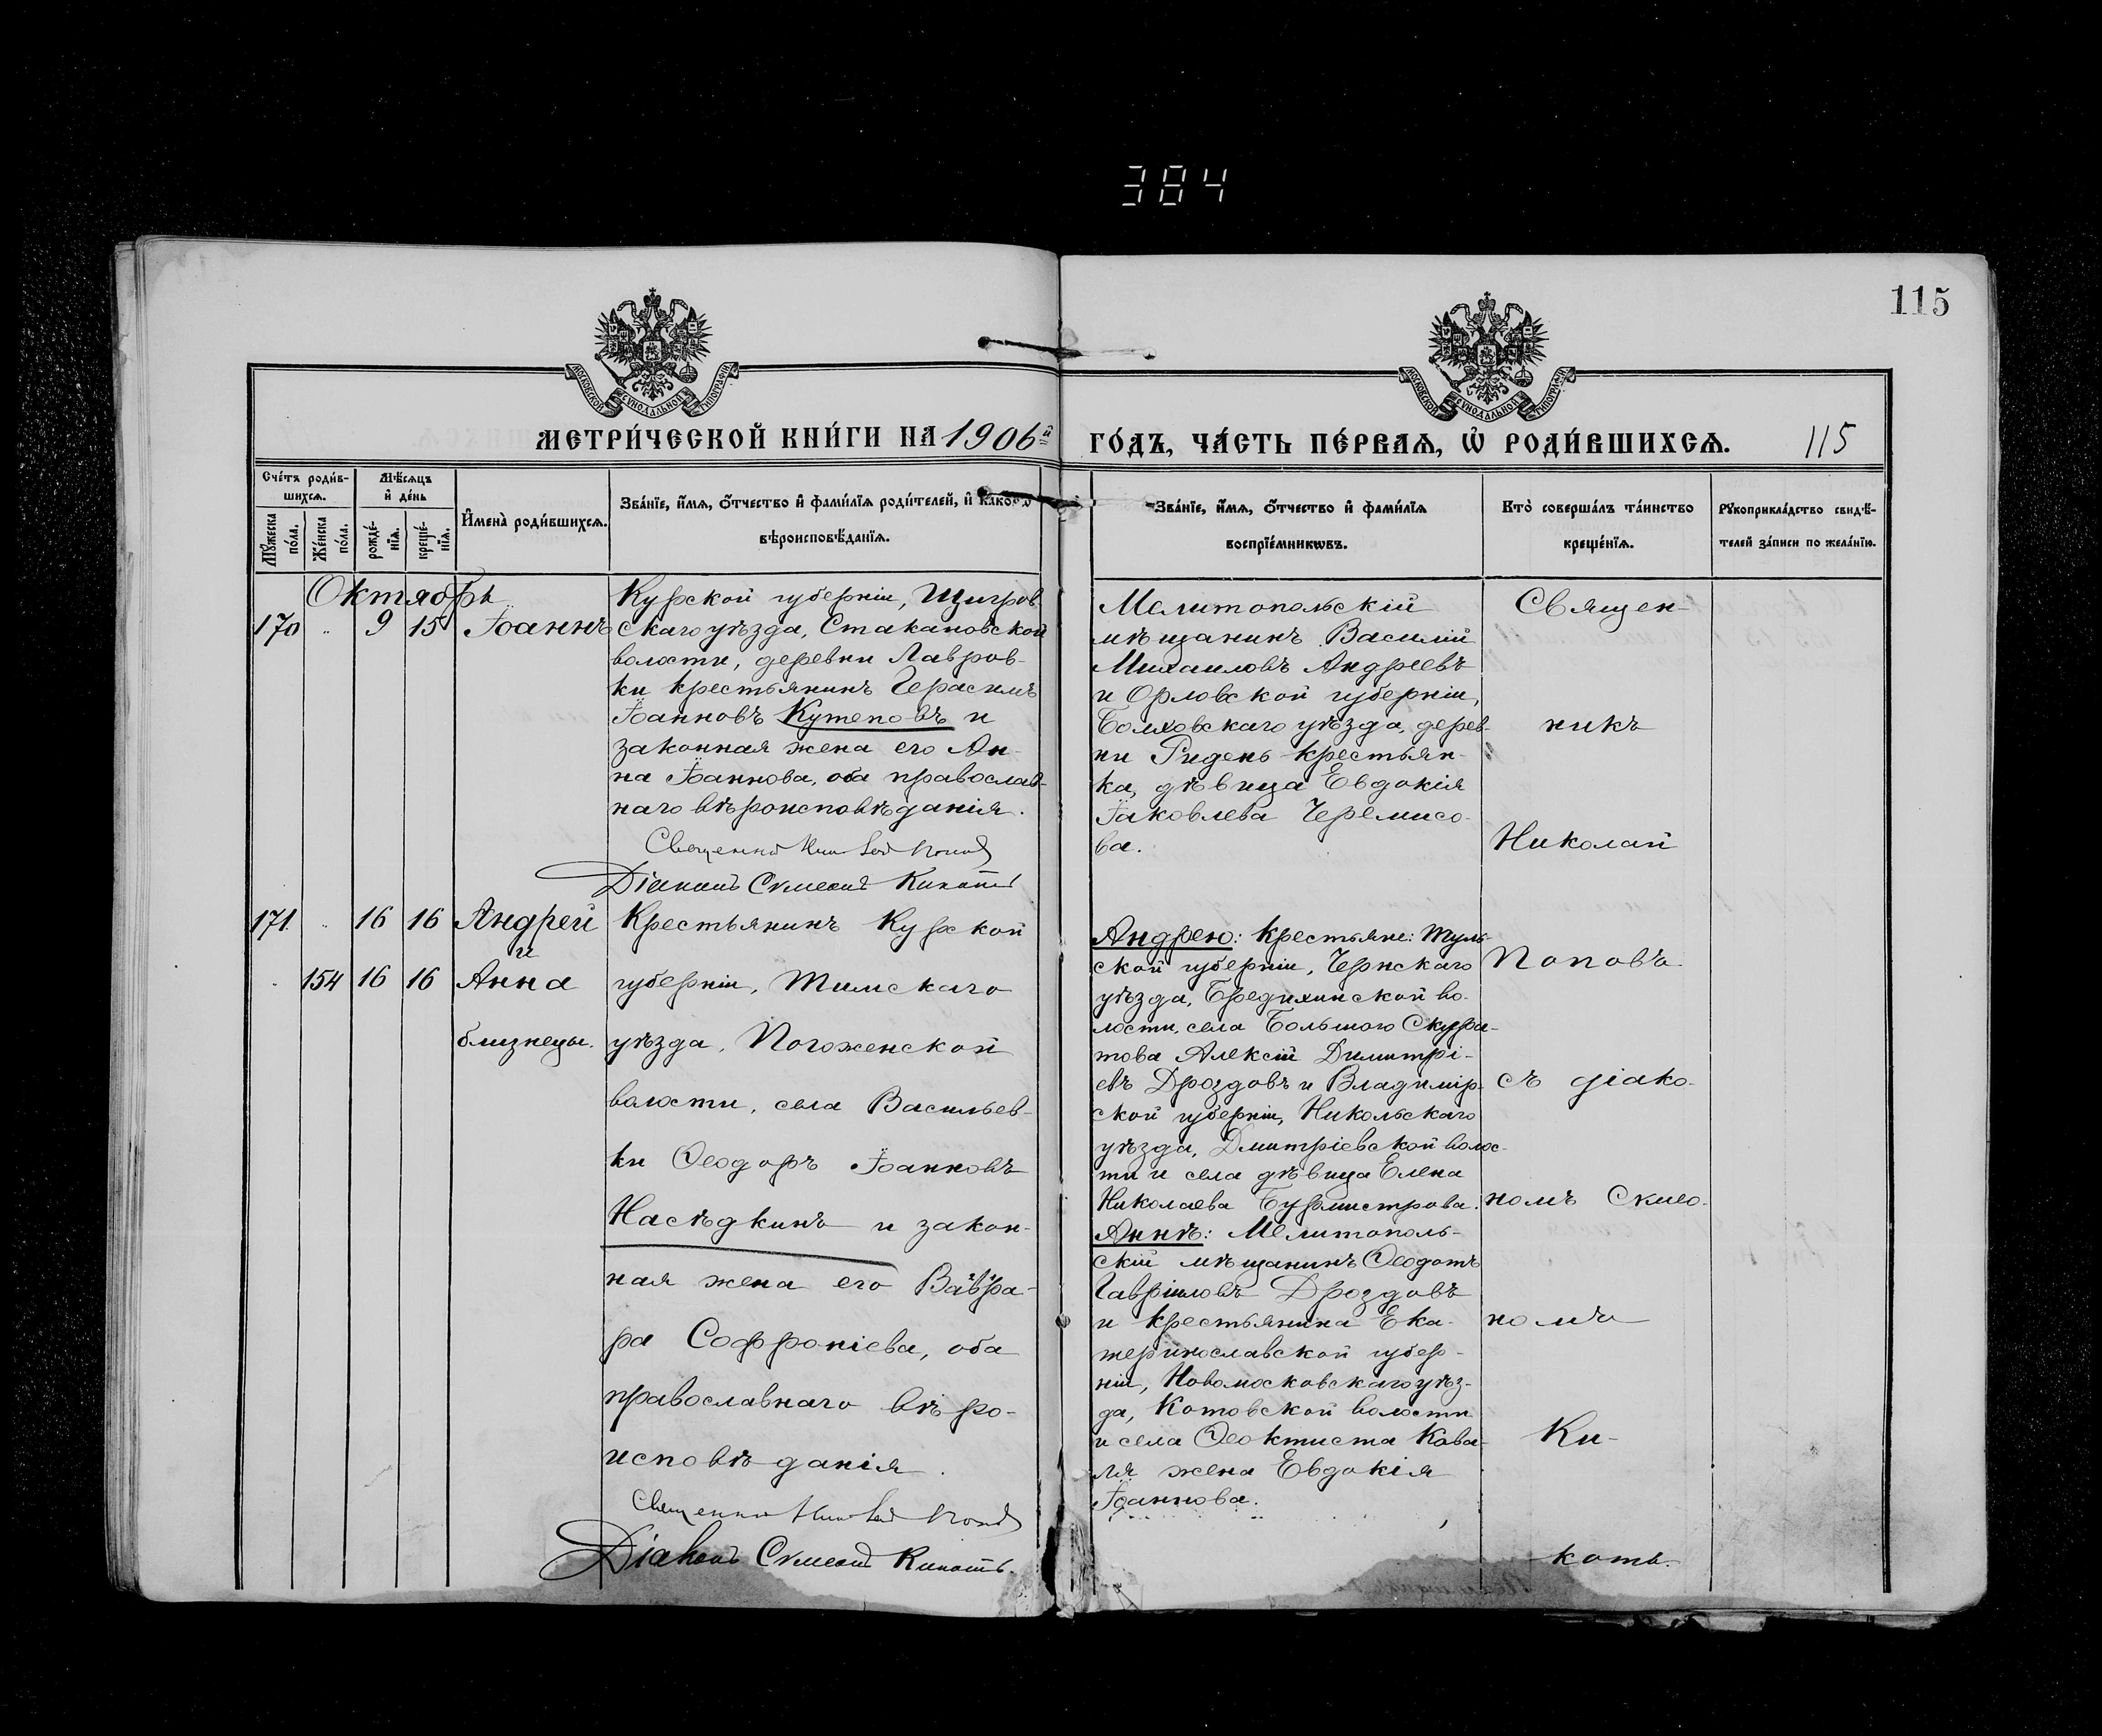 384
115
МОСКОВСКОЙ СУНОДАЛЬНОЙ ТИПОГРАФІИ
МОСКОВСКОЙ СУНОДАЛЬНОЙ ТИПОГРАФІИ
МЕТРИ́ЧЕСКОЙ КНИ́ГИ НА 1906й
ГО́ДЪ, ЧА́СТЬ ПЕ́РВАѦ, Ѡ҆ РОДИ́ВШИХСѦ. 115
Сче́тъ роди́в-
шихсѧ.
Мѣ́сѧцъ
и҆ де́нь
Мꙋ́жеска
по́ла.
Же́нска
по́ла.
рожде́-
нїѧ.
креще́-
нїѧ.
И҆мена̀ роди́вшихсѧ.
Зва́нїе, и҆́мѧ, ѻ҆́тчество и҆ фами́лїѧ роди́телей, и҆ како́гѡ
вѣроисповѣ́данїѧ.
Зва́нїе, и҆́мѧ, ѻ҆́тчество и҆ фами́лїѧ
воспрїе́мникѡвъ.
Кто̀ соверша́лъ та́инство
креще́нїѧ.
Рꙋкоприкла́дство свидѣ́-
телей за́писи по жела́нїю.
Октябрь
170 " 9 15 Іоаннъ
Курской губерніи, Щигров-
скаго уѣзда, Стакановской
волости, деревни Лавров-
ки крестьянинъ Герасимъ
Іоанновъ Кутеповъ и
законная жена его Ан-
на Іоаннова, оба православ-
наго вѣроисповѣданія.
Священникъ Николай Поповъ
Діаконъ Сѵмеонъ Кикоть
Мелитопольскій
мѣщанинъ Василій
Михаиловъ Андреевъ
и Орловской губерніи,
Болховскаго уѣзда, дерев-
ни Ридень крестьян-
ка, дѣвица Евдокія
Іаковлева Черемисо-
ва.
171. " 16 16 Андрей
и
" 154 16 16 Анна
близнецы.
Крестьянинъ Курской
губерніи, Тимскаго
уѣзда, Погоженской
волости, села Васильев-
ки Ѳеодоръ Іоанновъ
Насѣдкинъ и закон-
ная жена его Вавра-
ра Софроніева, оба
православнаго вѣро-
исповѣданія.
Священникъ Николай Поповъ
Діаконъ Сѵмеонъ Кикоть.
Андрею: крестьяне: Туль-
ской губерніи, Чернскаго
уѣзда, Бредихинской во-
лости, села Большого Скура-
това Алексій Димитрі-
евъ Дроздовъ и Владимір-
ской губерніи, Никольскаго
уѣзда, Дмитріевской волос-
ти и села дѣвица Елена
Николаева Бурмистрова.
Аннѣ: Мелитополь-
скій мѣщанинъ Ѳеодотъ
Гавріиловъ Дроздовъ
и крестьянина Ека-
теринославской губер-
ніи, Новомосковскаго уѣз-
да, Котовской волости
и села Ѳеоктиста Кова-
ля жена Евдокія
Іоаннова.
Священ-
никъ
Николай
Поповъ
съ діако-
номъ Сѵмео-
номъ
Ки-
коть.